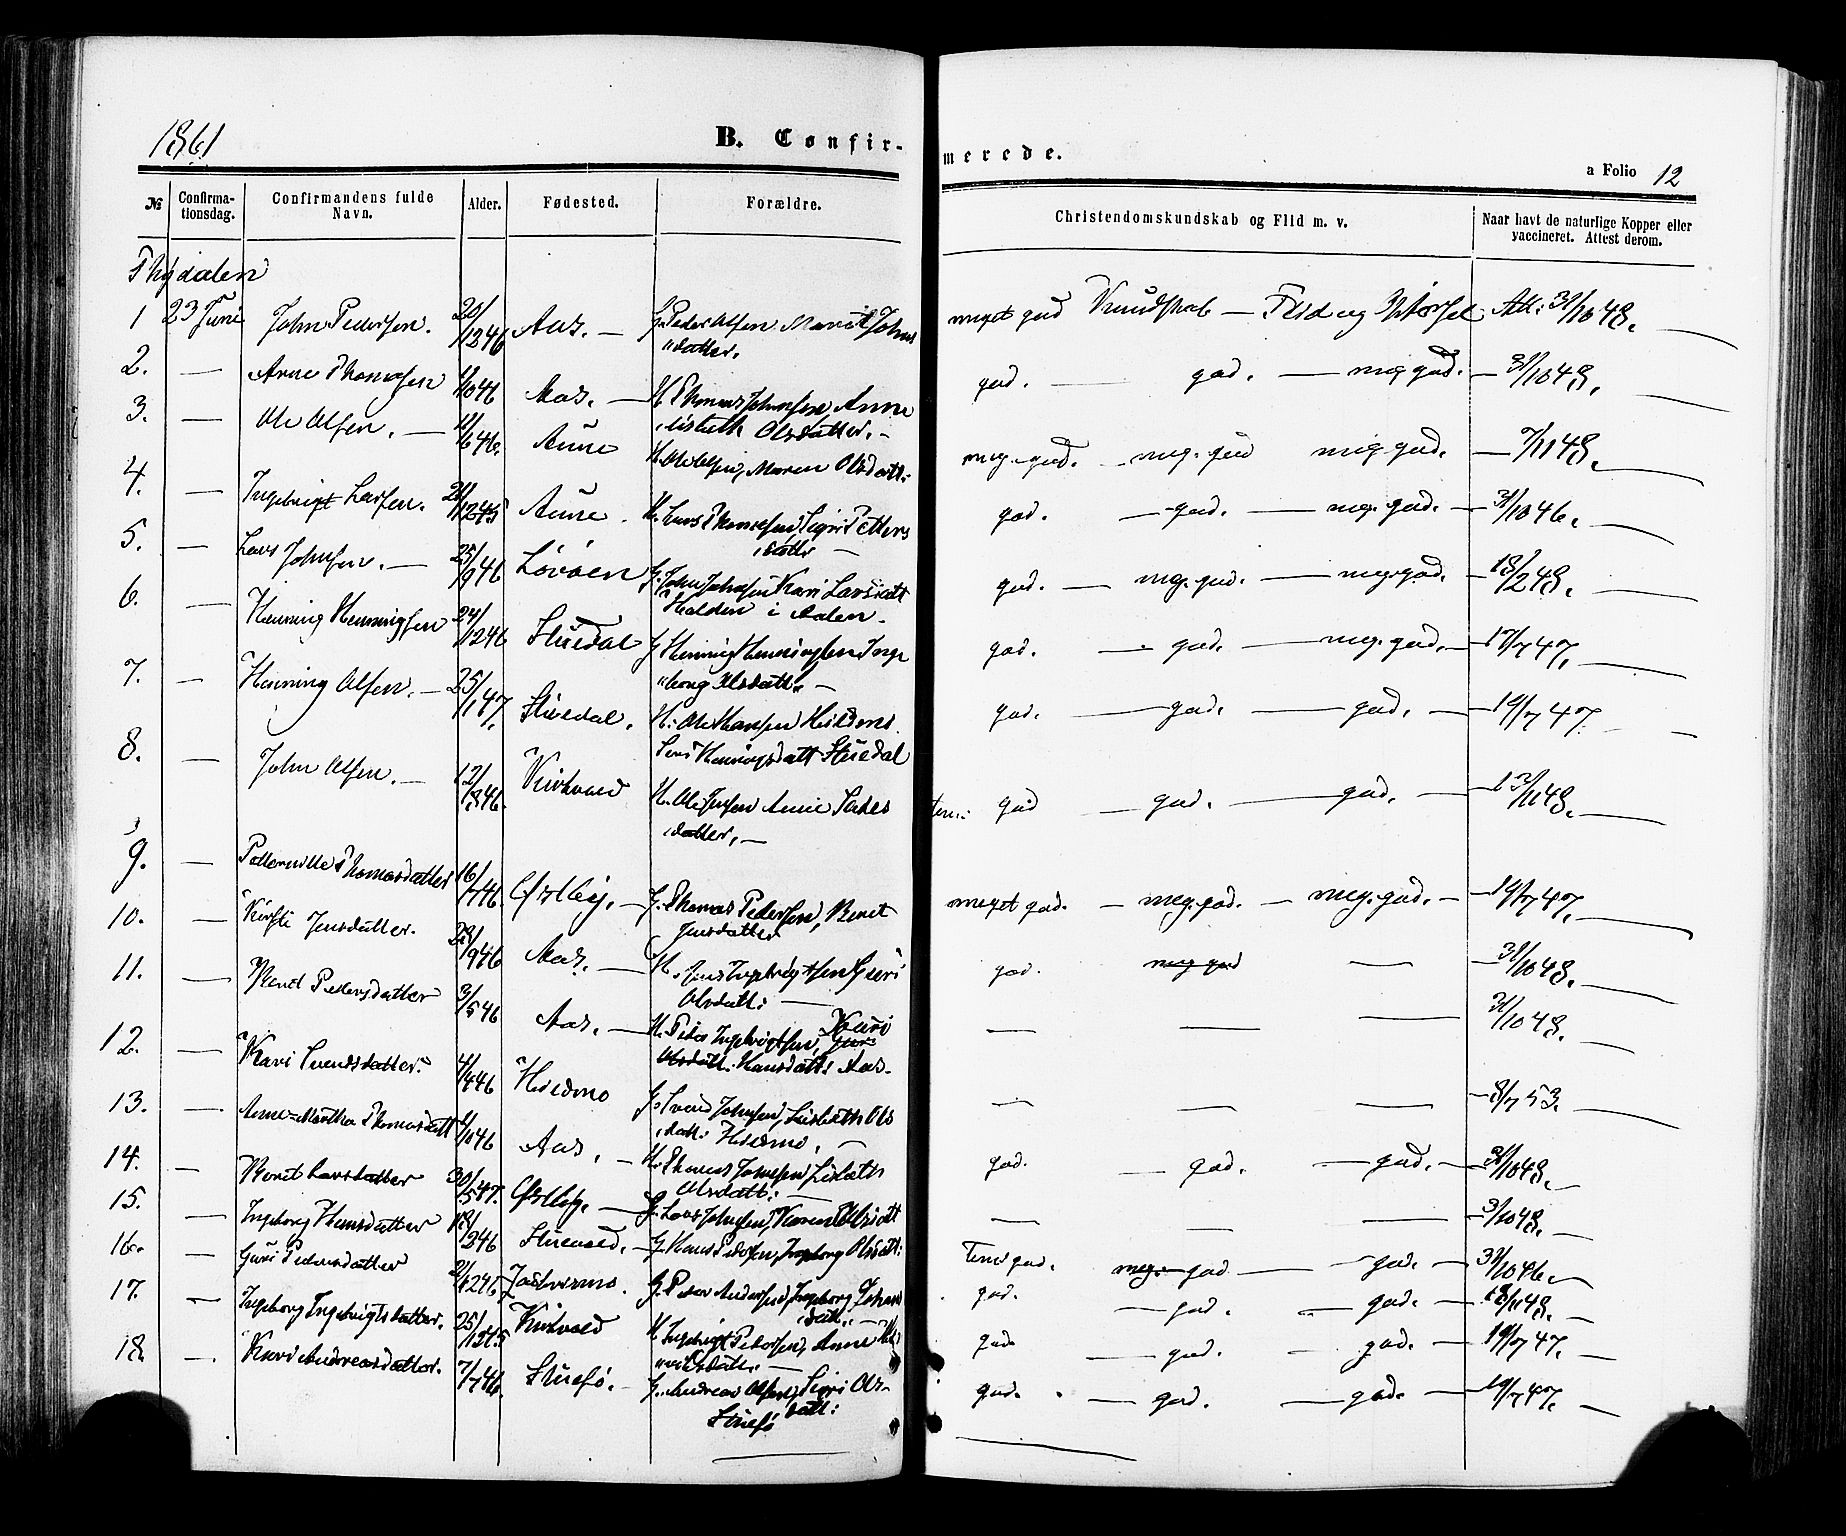 1861
B. Confirmerede.
a Folio 12
№ Confirmationsdag. Confirmandens fulde Navn. Alder. Fødested. Forældre. Christendomskundskab og Flid m. v. Naar havt de naturlige Kopper eller vaccineret. Attest derom.
Thydalen
1 23 Juni John Pedersen. 20/12 46 Aas. — G. Peder Olsen Marit Johns datter. meget god Kundskab — Flid og Vandel Att: 31/10 48.
2. — Arne Thomesen 1/10 46 Aas. — H. Thomas Johnsen Anne Lisbeth Olsdatter. — god. — god. — meg god. — 31/10 48.
3. — Ole Olsen. — 11/6 46. Aune H. Ole Olsen, Maren Olsdatt: meg. god. — meg. god meg. god. — 7/11 48.
4. — Ingebrigt Larsen. 21/12 45 Aune. H. Lars Thomesen Sigri Petters datter — god. — god. — meg. god. — 31/10 46.
5. — Lars Johnsen. — 25/9 46 Løvøen G. John Johnsen Kari Larsdatt Halden i Aalen. god. — meg. god. — meg. god. — 18/2 48.
6. — Henning Henningsen 24/12 46 Stuedal G. Henning Henningsen Inge borg Olsdatt. — god. — god. — meg. god. — 17/7 47.
7. — Henning Olsen. — 25/1 47. Stuedal. H. Ole Hansen Hilmo Seri Henningsdatt Stuedal god. — god. — god. — 19/7 47.
8. — John Olsen. — 12/8 46. Kirkvold H. Ole Jensen Anne Peders datter. — tem: god — god. — god. — 13/11 48.
9. — Petternille Thomasdatter 16/7 46. Østby. — G. Thomas Pedersen, Beret Jensdatter meget god. — meg. god. — meg. god. — 19/7 47.
10. — Kirsti Jensdatter. 29/9 46 Aas. — H. Jens Ingebrigtsen Guri Olsdatt: — god. — 31/10 48.
11. — Beret Pedersdatter 3/5 46 Aas. — H. Peder Ingebrigtsen, Kari Hansdatt: Aas. — — — 31/10 48.
12. — Kari Svendsdatter. 4/4 46 Hilmo G. Svend Johnsen, Lisbeth Ols datt: Hilmo. — — — — 8/7 53.
13. — Anne-Martha Thomasdatt 1/10 46 Aas. — H. Thomas Johnsen Lisbeth Olsdatt: — god. — god. — god. — 31/10 48.
14. — Beret Larsdatter 30/5 47. Østby. — G. Lars Johnsen, Karen Olsdatt — — — 31/10 48.
15. — Ingeborg Hansdatter 18/2 46 Stuevold. — G. Hans Pedersen, Ingeborg Olsdatt: Tem: god. — god — god. — 31/10 46.
16. — Guri Pedersdatter 21/12 46 G. Peder Andersen, Ingeborg Johns datt. — god. — god. — god. — 18/11 48.
17. — Ingeborg Ingebrigtsdatter. 25/12 45 Kirkvold H. Ingebrigt Pedersen, Anne — god — god. — god. — 19/7 47.
18. — Kari Andreasdatter. 7/7 46. Stuesø. — G. Andreas Olsen, Sigri Ols- datt: Stuesø god. — god. — god. — 19/7 47.